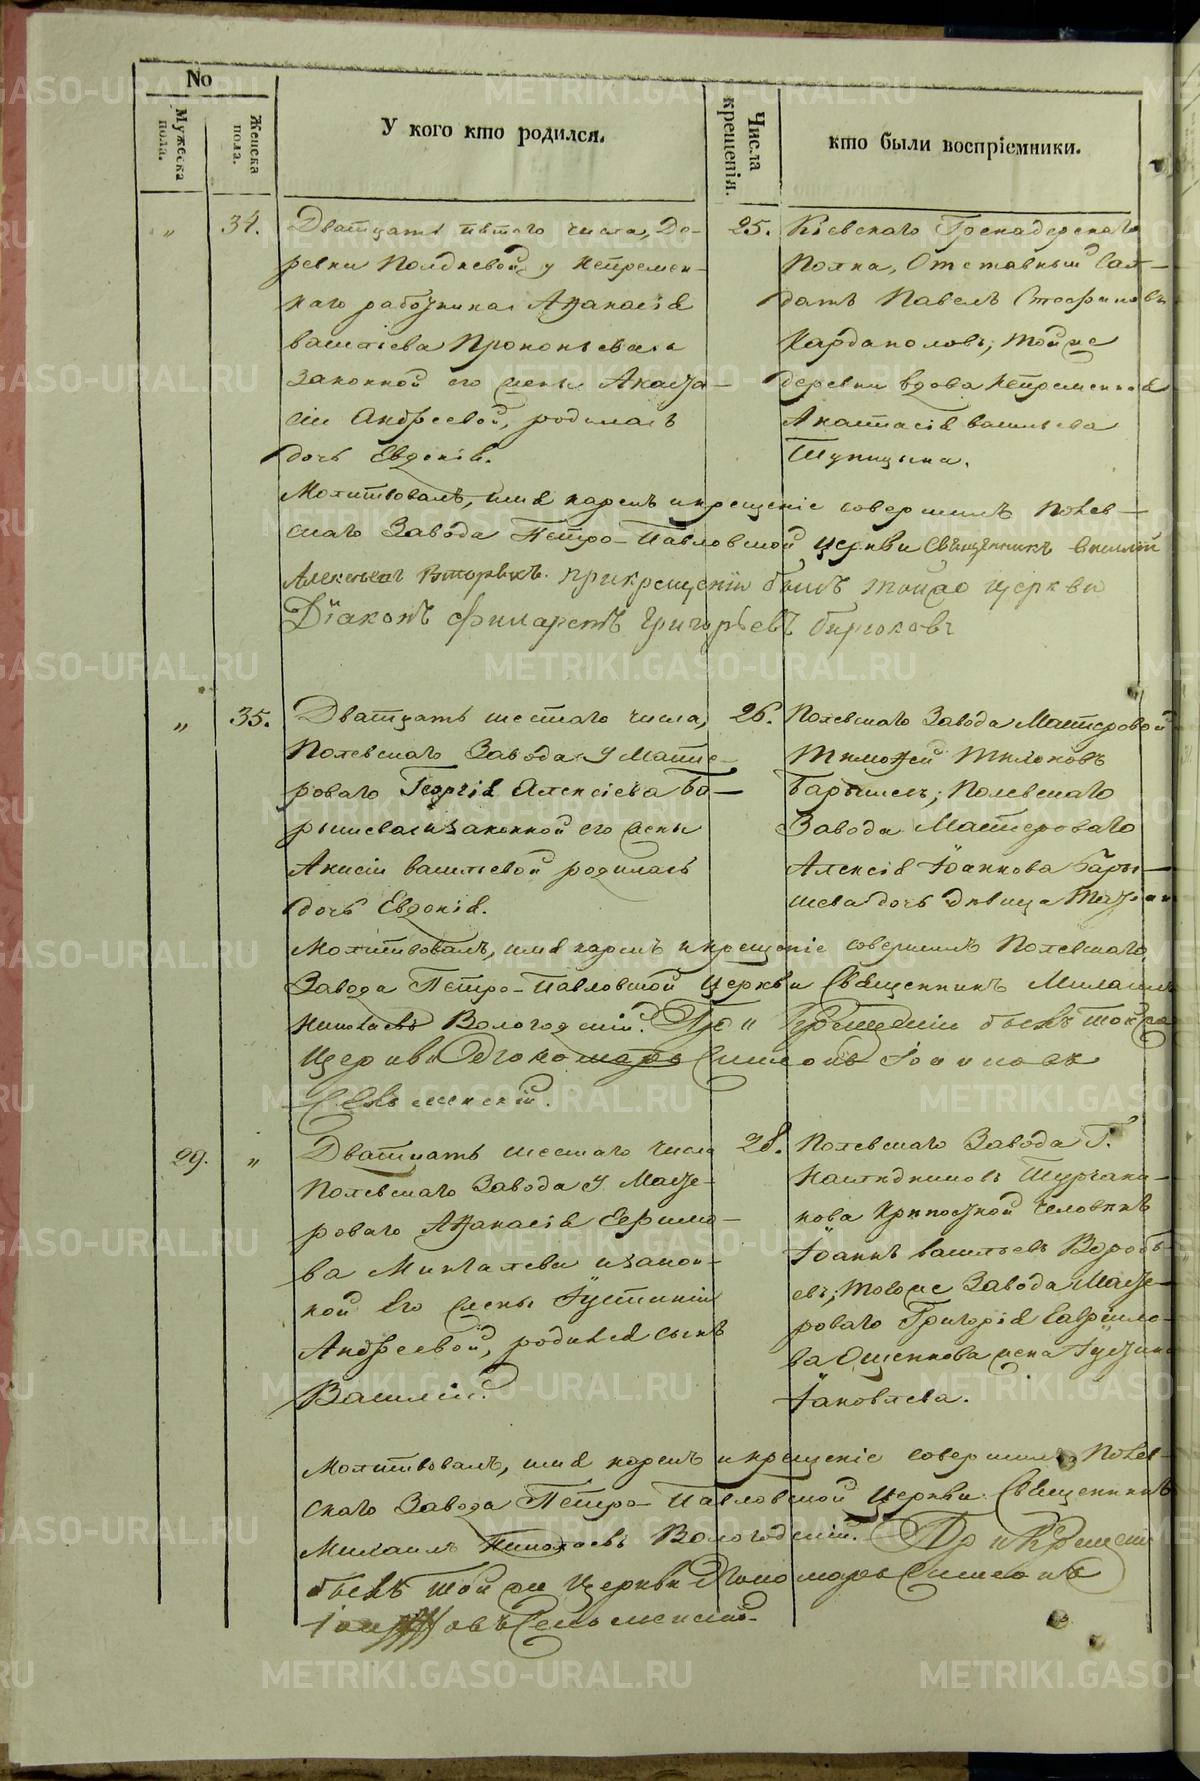 No
Мужеска пола.
Женска пола.
У кого кто родился.
Числа крещенія.
кто были воспріемники.
„ 34.
Дватцать пятого числа, Де-
ревни Полдневой, у непремен-
наго работника Афанасія
васильева Прокопьева и
законной его жены Анаста-
сіи Андреевой, родилась
дочь Евдокія.
25.
Кіевскаго Гренадерскаго
Полка, Отставный Сал-
датъ Павелъ
Кардаполовъ; тойже
деревни вдова непременная
Анастасія васильева
Шупицына.
Молитвовалъ, имя нарекъ и крещеніе совершилъ Полев-
скаго Завода Петро-Павловской Церкви Священникъ Василій
Алексеевъ Вторыхъ. при крещеніи былъ тойже церкви
Діаконъ Филаретъ Григорьевъ Бирюковъ
„ 35.
Дватцать шестаго числа,
Полевскаго Завода У Масте-
роваго Георгія Алексіева Ба-
рышева и законной его жены
Анисіи васильевой родилась
дочь Евдокія.
26.
Полевскаго Завода Мастеровой
Тимофей
Барышевъ; Полевскаго
Завода Мастероваго
Алексія Іоаннова Бары-
шева дочь девица
Молитвовалъ, имя нарекъ и крещеніе совершилъ Полевскаго
Завода Петро-Павловской Церкви Священникъ Михаилъ
Николаевъ Вологодскій. При Крещеніи былъ тойже
Церкви Пономарь Симеонъ Іоанновъ
29. „
Дватцать шестаго числа
Полевскаго Завода У Масте-
роваго Афанасія Ефимо-
ва Минталева и закон-
ной его жены Іустиніи
Андреевой, родился сынъ
Василій.
28.
Полевскаго Завода Г.
Наследниковъ Турчани-
нова Крепостной человекъ
Іоаннъ васильевъ Воробь-
евъ; тогоже Завода Масте-
роваго Григорія Гаврило-
ва Ощепкова жена Іустина
Іаковлева.
Молитвовалъ, имя нарекъ и крещеніе совершилъ Полев-
скаго Завода Петро-Павловской Церкви Священникъ
Михаилъ Николаевъ Вологодскій. При Крещеніи
былъ той же Церкви Пономарь Симеонъ
METRIKI.GASO-URAL.RU